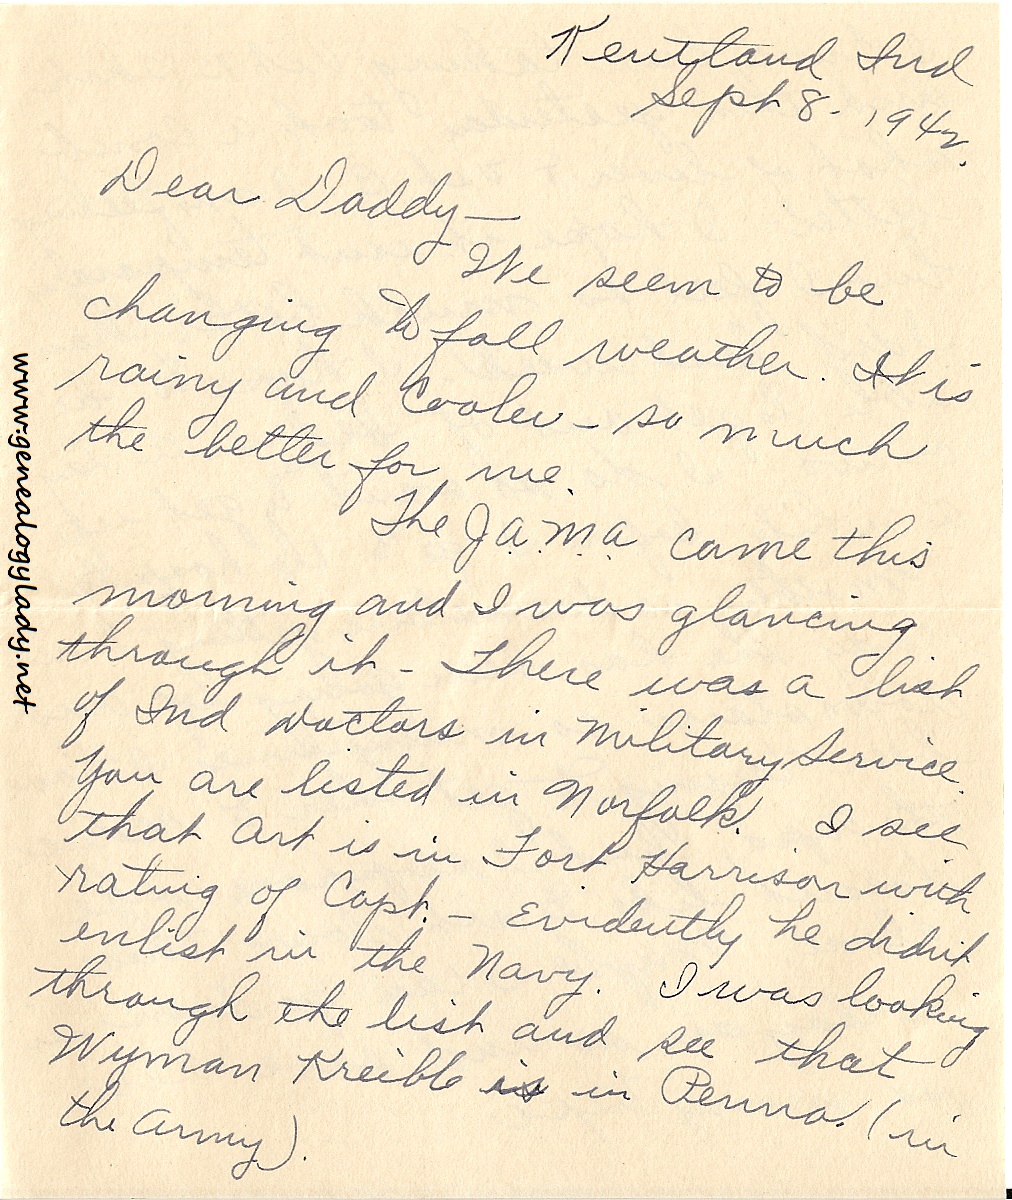 Kentland Ind
Sept 8. 1942.
Dear Daddy—
We seem to be
changing to fall weather. It is
rainy and cooler – so much
the better for me.
The J.A.M.A. came this
morning and I was glancing
through it – There was a list
of Ind Doctors in Military Service.
You are listed in Norfolk. I see
that Art is in Fort Harrison with
rating of Capt. – Evidently he didnt
enlist in the Navy. I was looking
through the list and see that
Wyman Kreible is in Penna. (in
the Army).
www.genealogylady.net